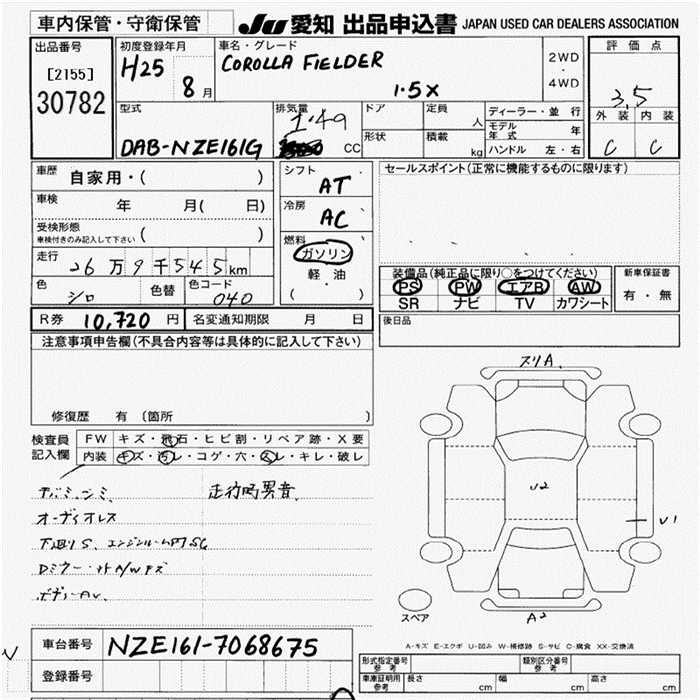 車内保管・守衛保管
JU 愛知 出品申込書 JAPAN USED CAR DEALERS ASSOCIATION
出品番号
[2155]
30782
初度登録年月
H25 8月
車名・グレード
COROLLA FIELDER
1.5X
2WD
・
4WD
評価点
3.5
外装 内装
C C
型式
DAB-NZE161G
排気量
1.49
CC
ドア
形状
定員 人
積載 kg
ディーラー・並行
モデル年式 年
ハンドル 左・右
車歴 自家用・( )
車検 年 月( 日)
受検形態
車検付きのみ記入して下さい ( )
走行 26万9千545km
色 シロ 色替 色コード 040
シフト AT
冷房 AC
燃料 ガソリン
軽・油
( )
セールスポイント(正常に機能するものに限ります)
装備品(純正品に限り○をつけてください)
PS PW エアB AW
SR ナビ TV カワシート
新車保証書
有・無
R券 10,720円 名変通知期限 月 日
後日品
注意事項申告欄(不具合内容等は具体的に記入して下さい)
修復歴 有 〔箇所
検査員
記入欄
FW キズ・飛石・ヒビ割・リペア跡・X要
内装 キズ・汚レ・コゲ・穴・スレ・キレ・破レ
走行時異音
オーディオレス
下廻りS、エンジンルーム内SC
スリA
U2
U1
A2
スペア
A-キズ E-エクボ U-凹み W-補修跡 S-サビ C-腐食 XX-交換済
車台番号 NZE161-7068675
登録番号
形式指定番号 参考
類別区分番号 参考
車庫証明用 参考 長さ cm 幅 cm 高さ cm